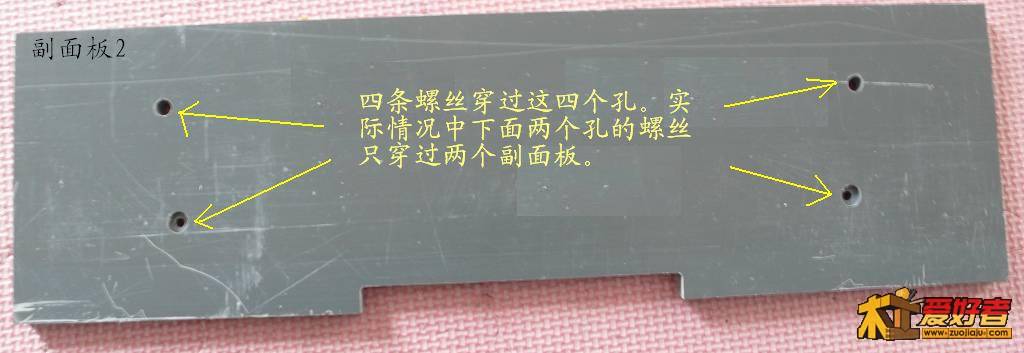 副面板2
四条螺丝穿过这四个孔。实
际情况中下面两个孔的螺丝
只穿过两个副面板。
木工爱好者
www.izuojiaju.com